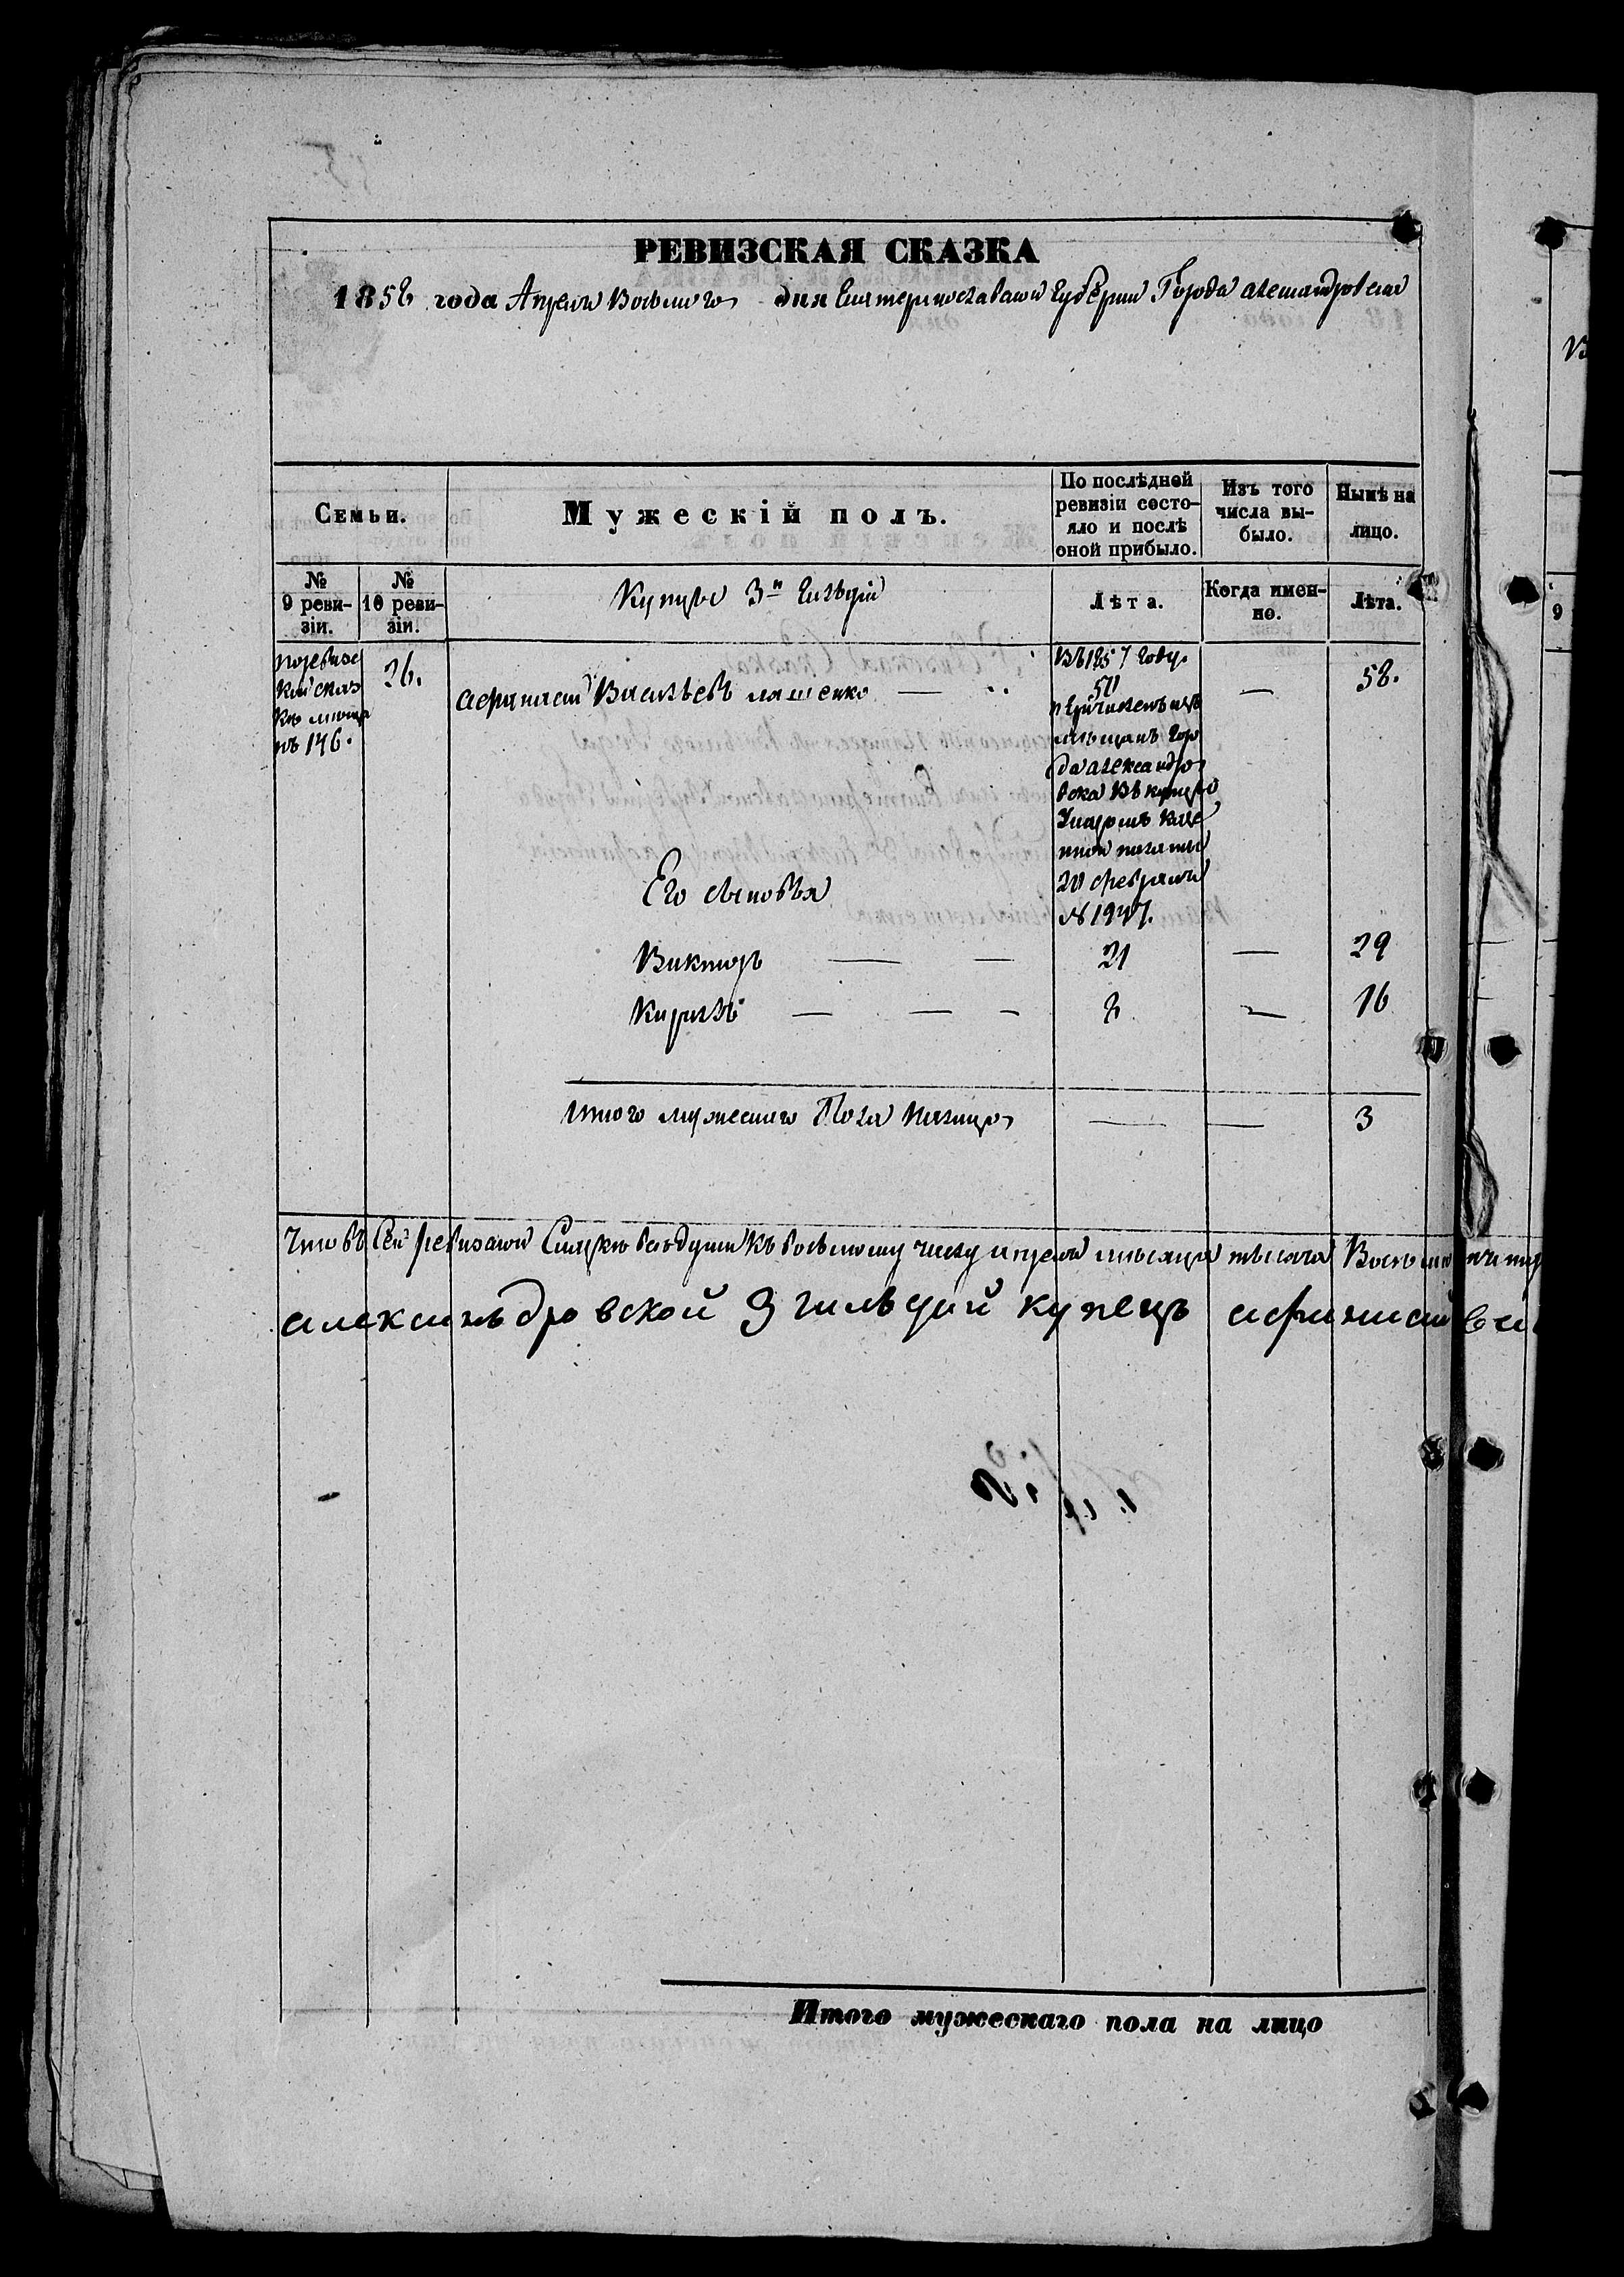 РЕВИЗСКАЯ СКАЗКА
1858 года Апреля Восьмого дня Екатеринославской Губернии Города Александровска
Семьи.
Мужескій полъ.
По послѣдней
ревизіи состо-
яло и послѣ
оной прибыло.
Изъ того
числа вы-
было.
Нынѣ на
лицо.
№
9 реви-
зіи.
№
10 реви-
зіи.
Купцы 3й Гильдіи
Лѣта.
Когда имен-
но.
Лѣта.
По ревизс
кой сказ
кѣ
146.
26.
Афанасій Васильевъ Ляшенко
Въ 1857 году.
50
перечисленъ изъ
мѣщанъ Горо
да Александро
вска Въ купцы
Указомъ Казе
нной палаты
20 февраля
№ 1947.
—
58.
Его сыновья
Викторъ — —
21
—
29
Кирилъ — — —
8
—
16
Итого мужескаго Пола налицо
—
—
3
Что въ Сей ревизской Сказкѣ всѣ души къ восьмому числу апреля мѣсяца тысяча Восемь
алексанъдровской 3 гильдіи купецъ афанасий ва
Итого мужескаго пола на лицо
9